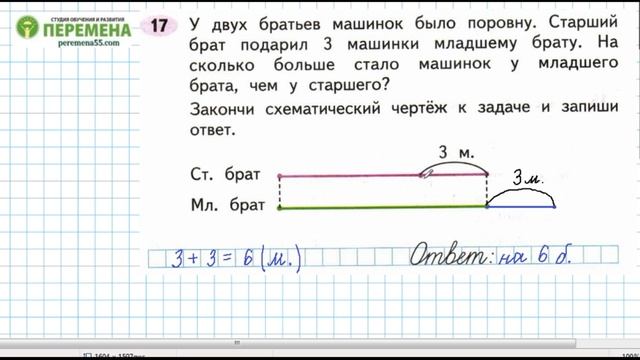 СТУДИЯ ОБУЧЕНИЯ И РАЗВИТИЯ
ПЕРЕМЕНА
peremena55.com
17 У двух братьев машинок было поровну. Старший
брат подарил 3 машинки младшему брату. На
сколько больше стало машинок у младшего
брата, чем у старшего?
Закончи схематический чертёж к задаче и запиши
ответ.
3 м.
Ст. брат
3 м.
Мл. брат
3 + 3 = 6 (м.) Ответ: на 6 б.